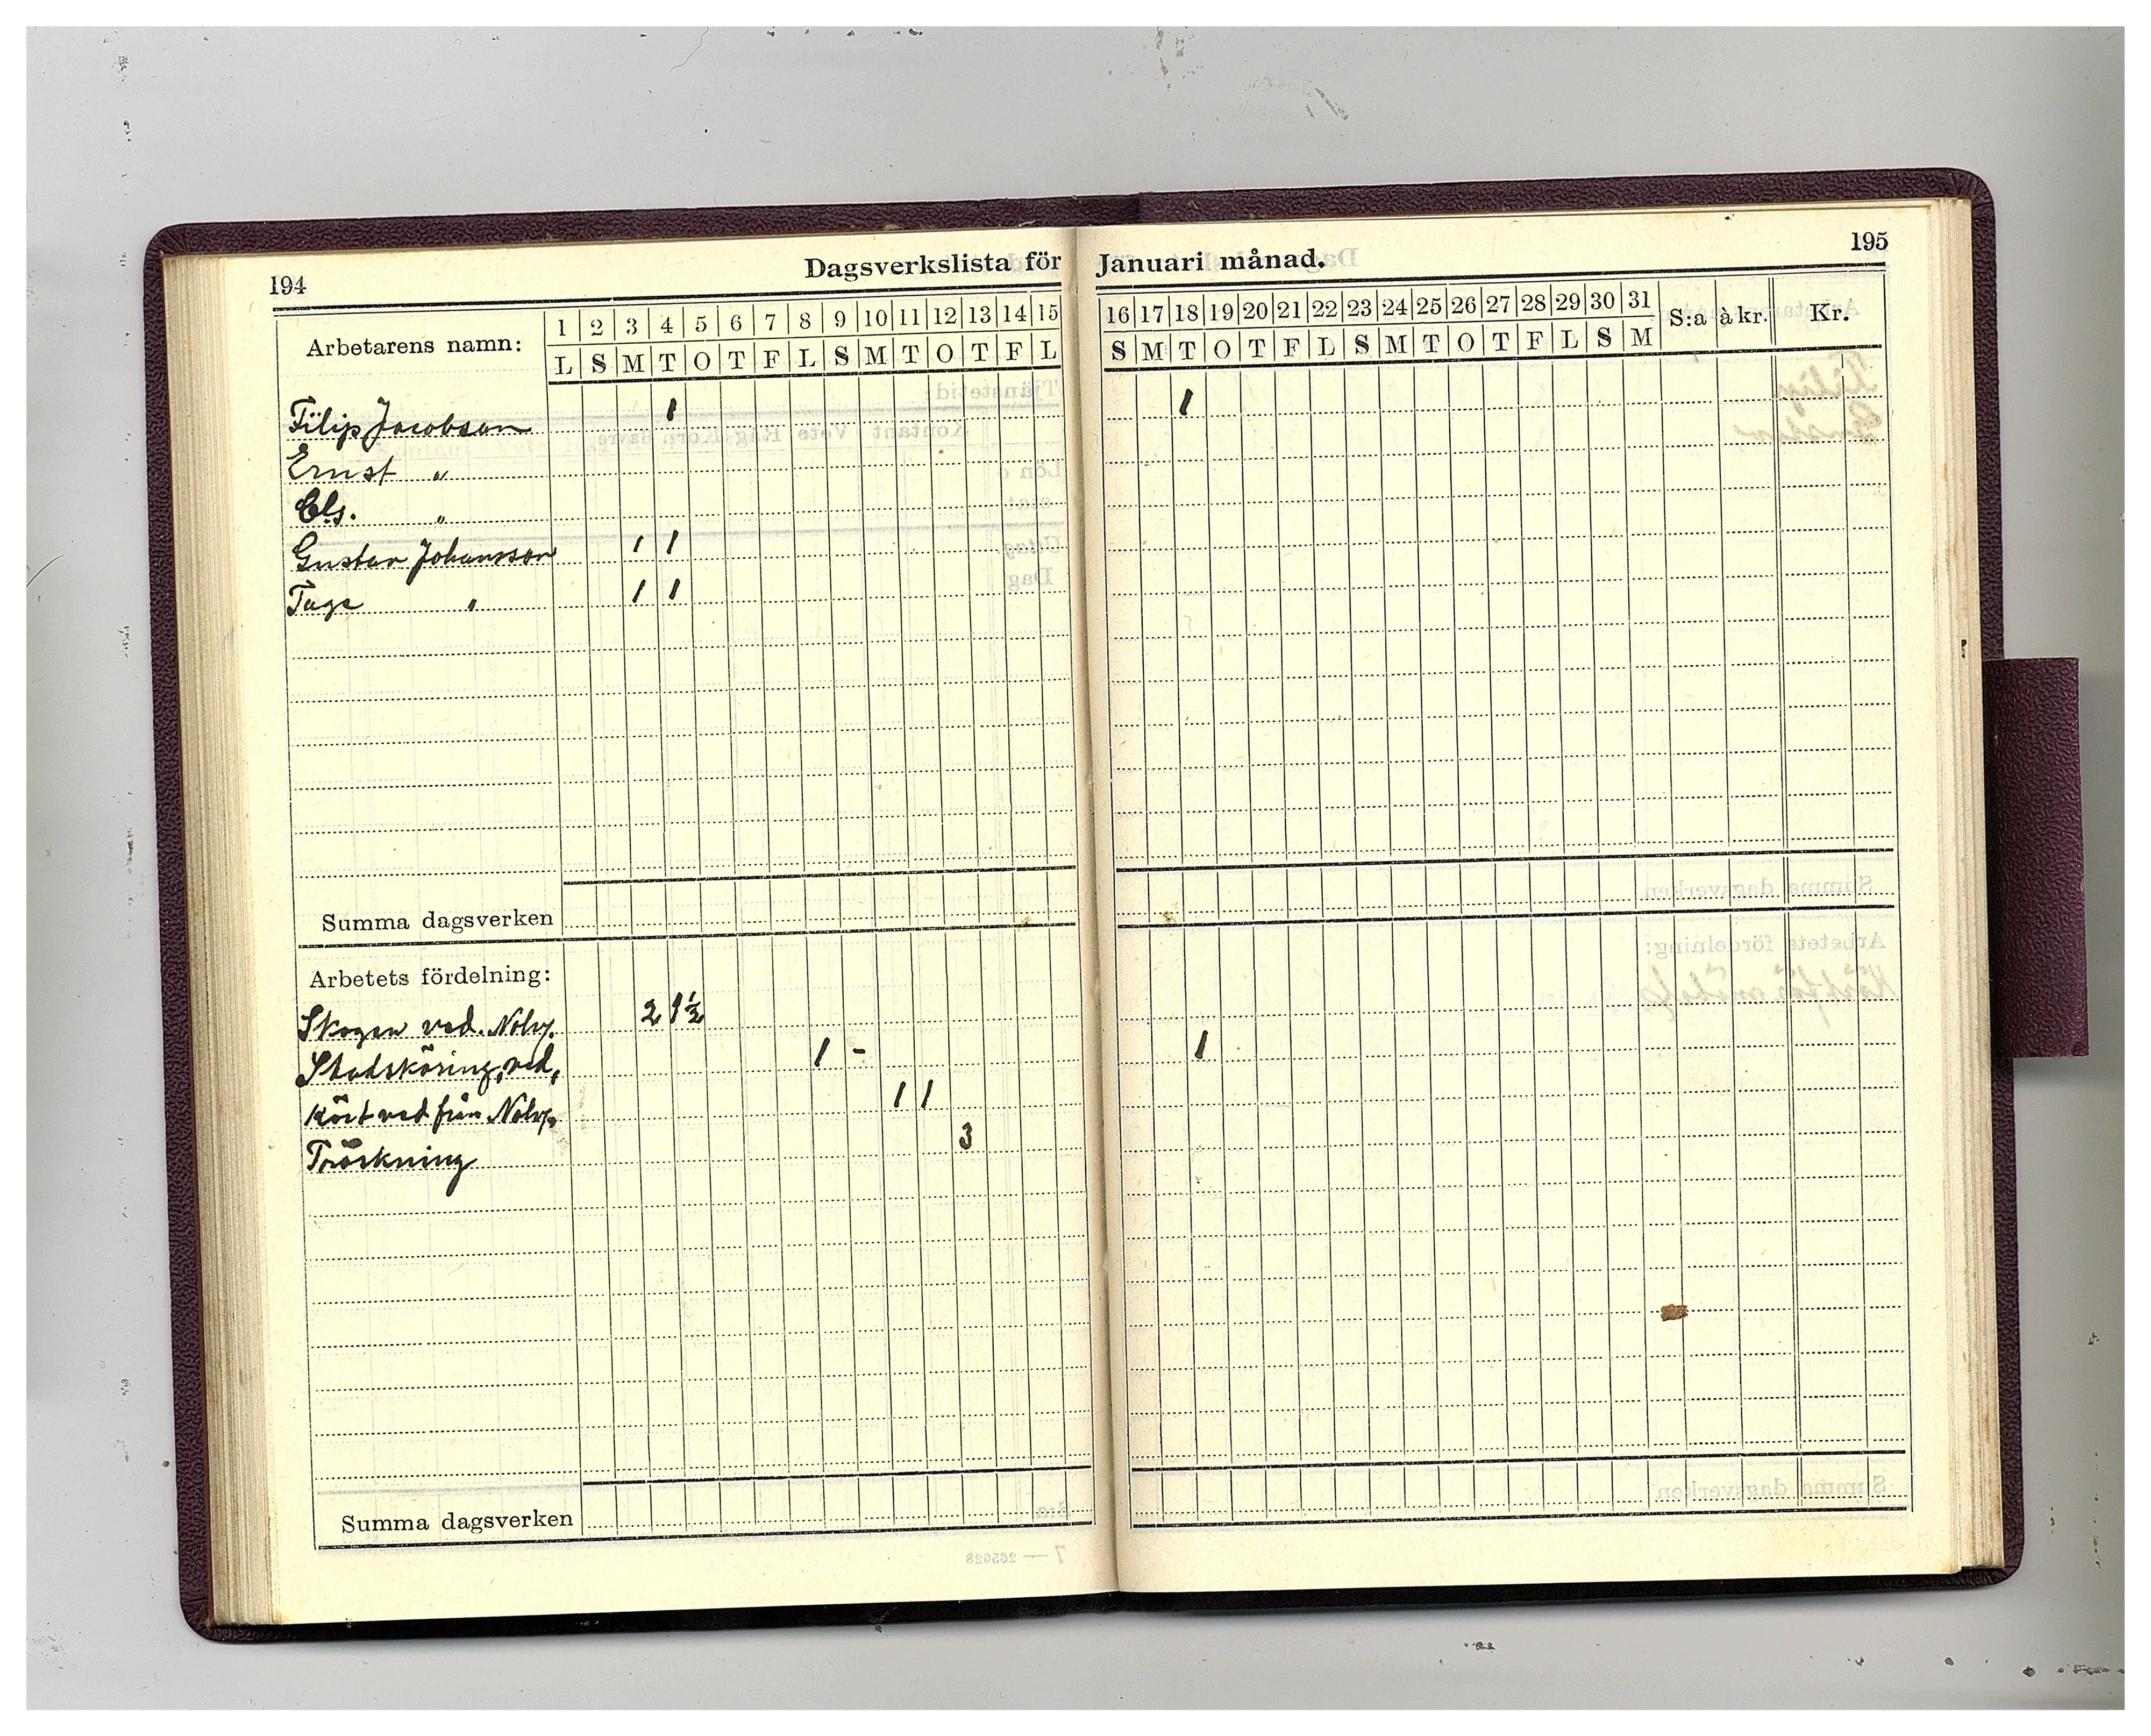 194
Dagsverkslista för
Arbetarens namn: 1 2 3 4 5 6 7 8 9 10 11 12 13 14 15
L S M T O T F L S M T O T F L
Filip Jacobson 1
Ernst "
Els. "
Gustav Johansson 1 1
Tage " 1 1
Summa dagsverken
Arbetets fördelning:
Skogen ved. Nolv. 2 1½
Stadsköring, ved, 1 -
Kört ved från Nolv. 1 1
Tröskning 3
Summa dagsverken
195
Januari månad.
16 17 18 19 20 21 22 23 24 25 26 27 28 29 30 31 S:a à kr. Kr.
S M T O T F L S M T O T F L S M
1
1